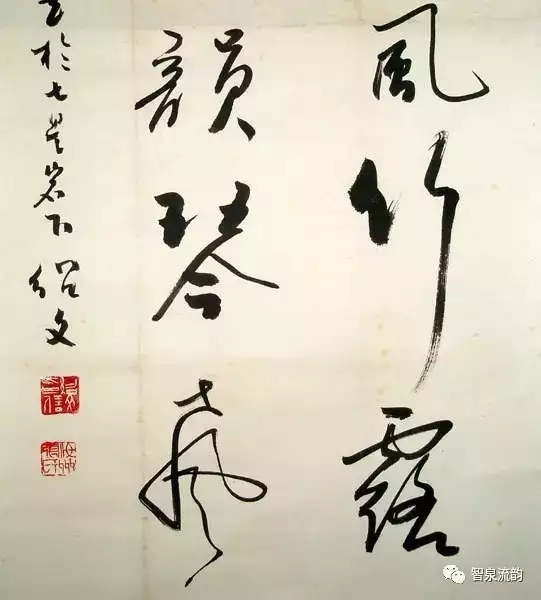 風竹露
韻琴
於七星岩下 紹文
智泉流韵